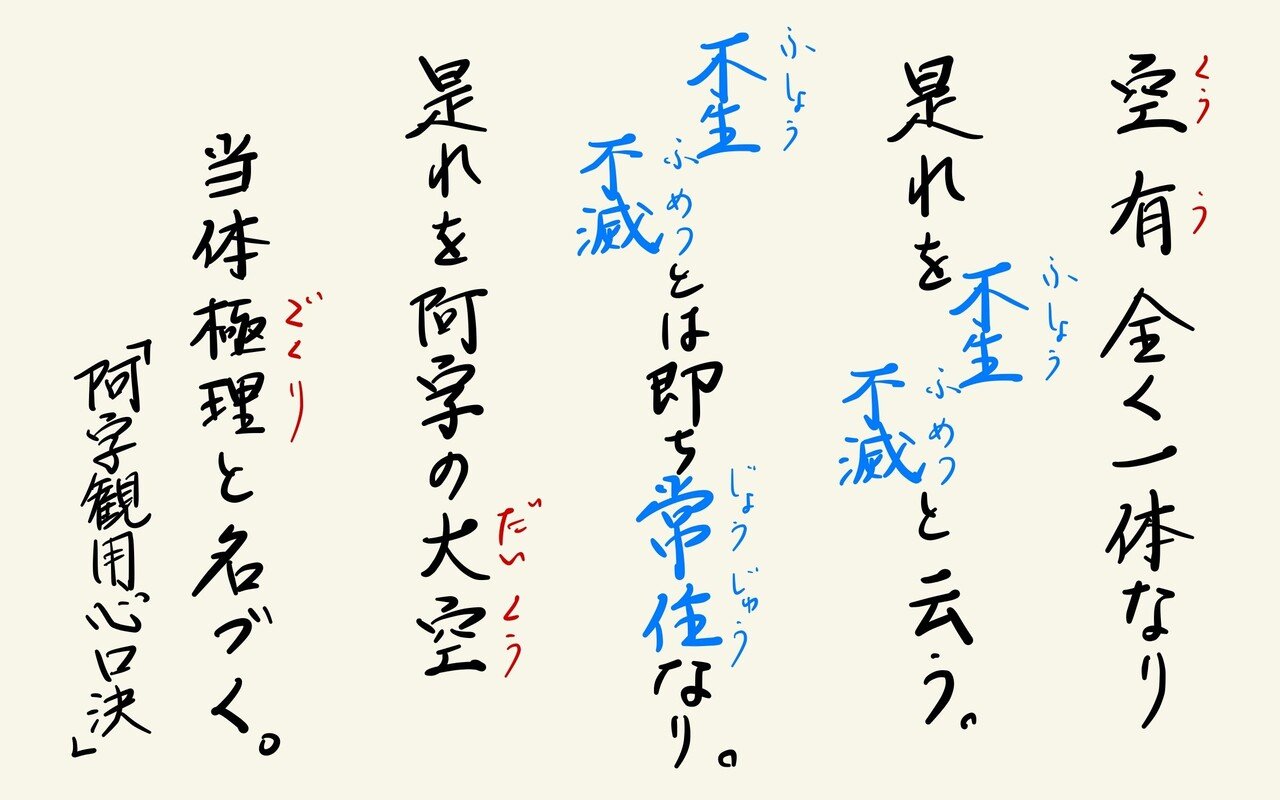 空有全く一体なり
くう う
是れを不生不滅と云う。
ふしょう ふめつ
不生不滅とは即ち常住なり。
ふしょう ふめつ じょうじゅう
是れを阿字の大空
だいくう
当体極理と名づく。
ごくり
「阿字観用心口決」